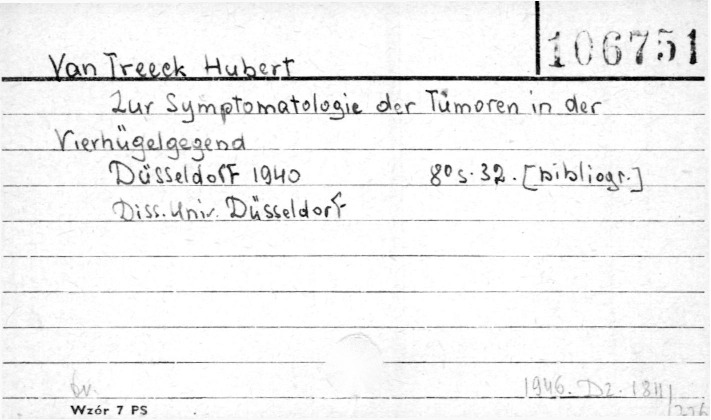 Van Treeck Hubert 106751
Zur Symptomatologie der Tumoren in der
Vierhügelgegend
Düsseldorf 1940 8° s. 32. [bibliogr.]
Diss. Univ. Düsseldorf
1946. Dz. 1811/
Wzór 7 PS